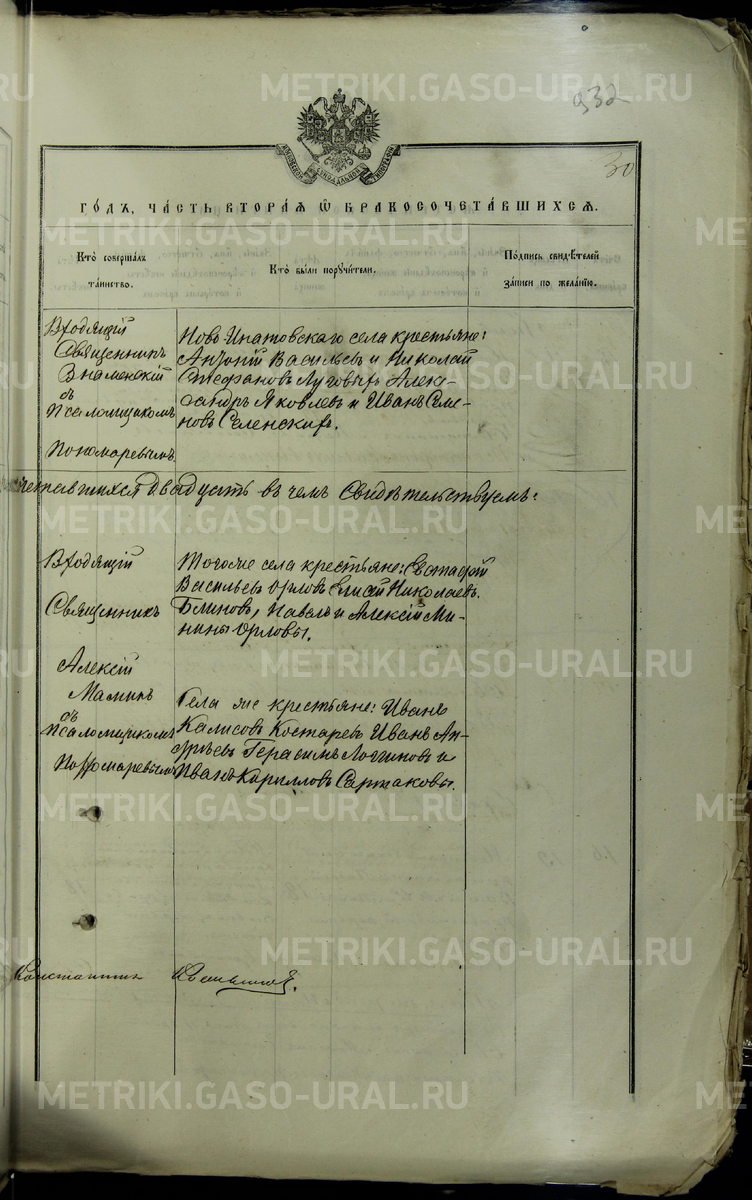 METRIKI.GASO-URAL.RU
932
30
ГО́ДЪ, ЧА́СТЬ ВТОРА́Я Ѿ БРАКОСОЧЕТА́ВШИХСѦ.
Кто̀ соверша́лъ
та́инство.
Кто̀ бы́ли поручи́тели.
По́дпись свидѣ́телей
за́писи по жела́нїю.
Входящій
Священникъ
Знаменскій
съ
Псаломщикомъ
Пономаревымъ.
Ново Ипатовскаго села крестьяне:
Антоній Васильевъ и Николай
Стефановъ Луговыхъ Алек-
сандръ Яковлевъ и Иванъ Семе-
новъ Селенскихъ.
двадцать въ чемъ Свидѣтельствуемъ:
Входящій
Священникъ
Алексій
Маминъ
съ
Псаломщикомъ
Пономаревымъ
Тогоже села крестьяне: Евстафій
Васильевъ Орловъ Елисей Николаевъ
Блиновъ, Павелъ и Алексій Ми-
нины Орловы.
Села же крестьяне: Иванъ
Костаревъ Иванъ Ан-
дреевъ Герасимъ Логгиновъ и
Иванъ Кирилловъ Саржаковы.
Константинъ